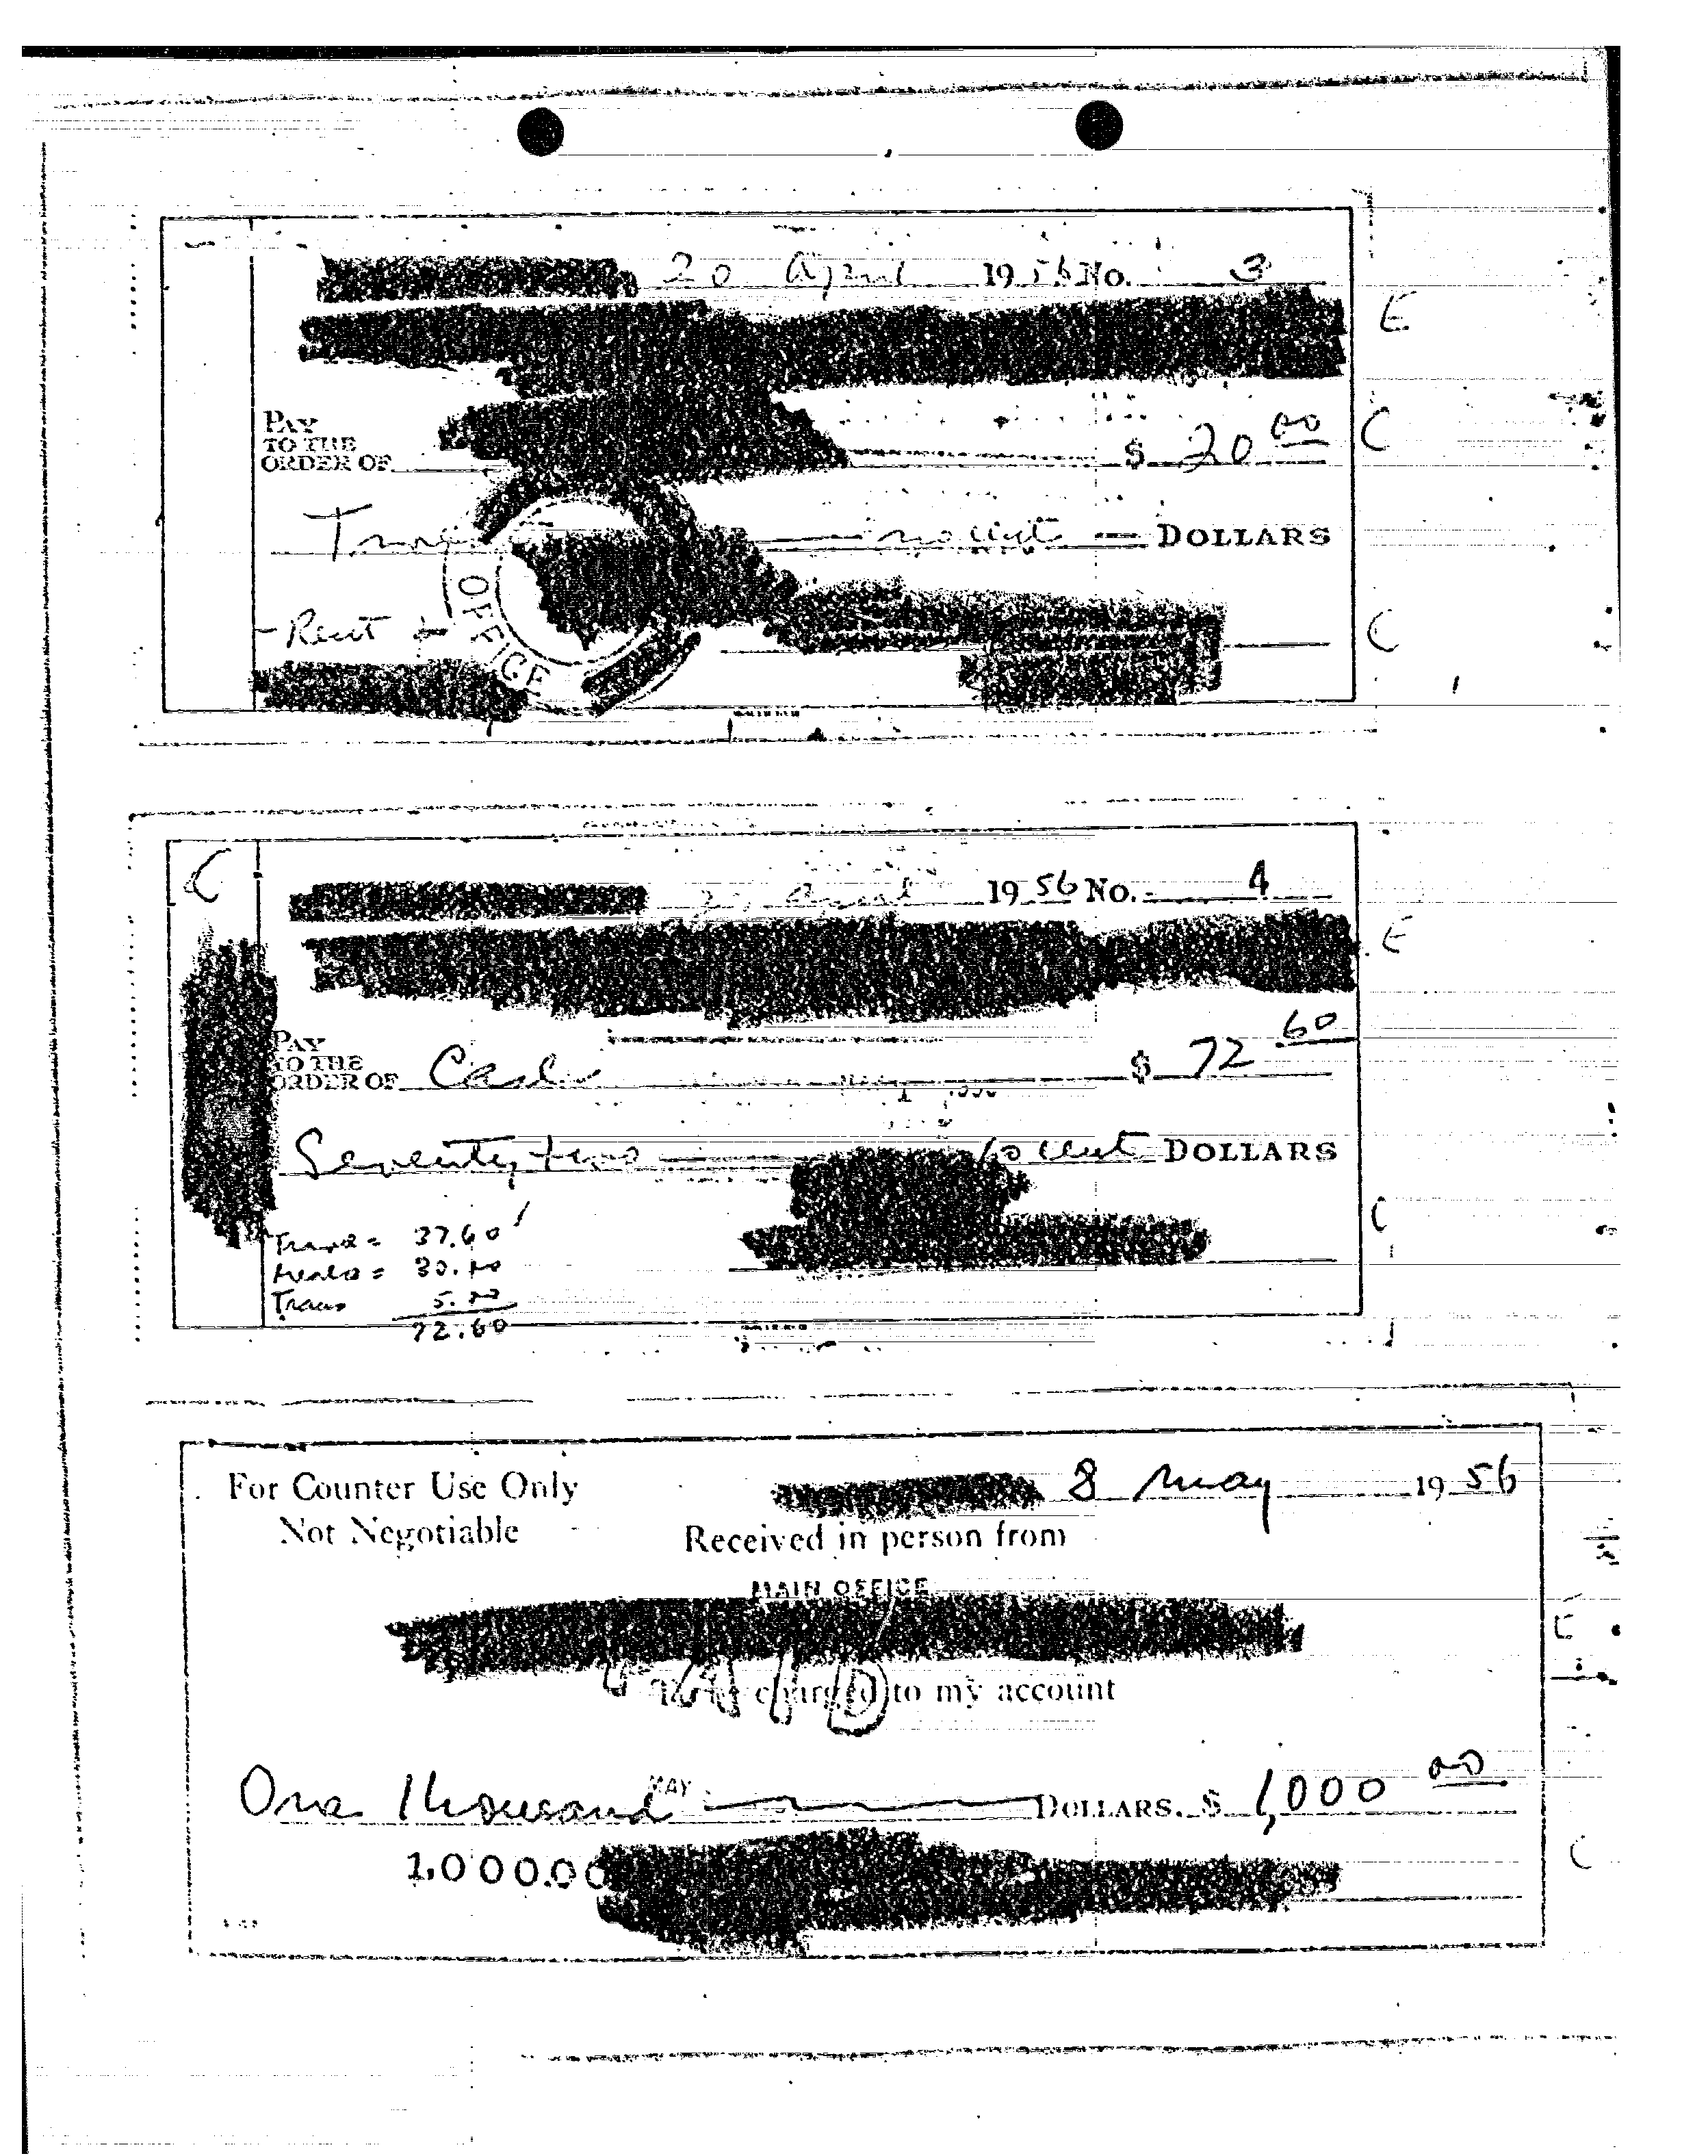 20 April 1956 No. 3
E
PAY
TO THE
ORDER OF
$ 20 00
C
no cent — DOLLARS
OFFICE
Rent
C
C
1956 No. 4
E
PAY
TO THE
ORDER OF Cash
$ 72 60
Seventy two cent DOLLARS
C
37.60
30.00
5.00
72.60
For Counter Use Only
Not Negotiable
8 May 1956
Received in person from
MAIN OFFICE
E
to my account
One thousand DOLLARS. $ 1,000 00
MAY
C
1,000.00